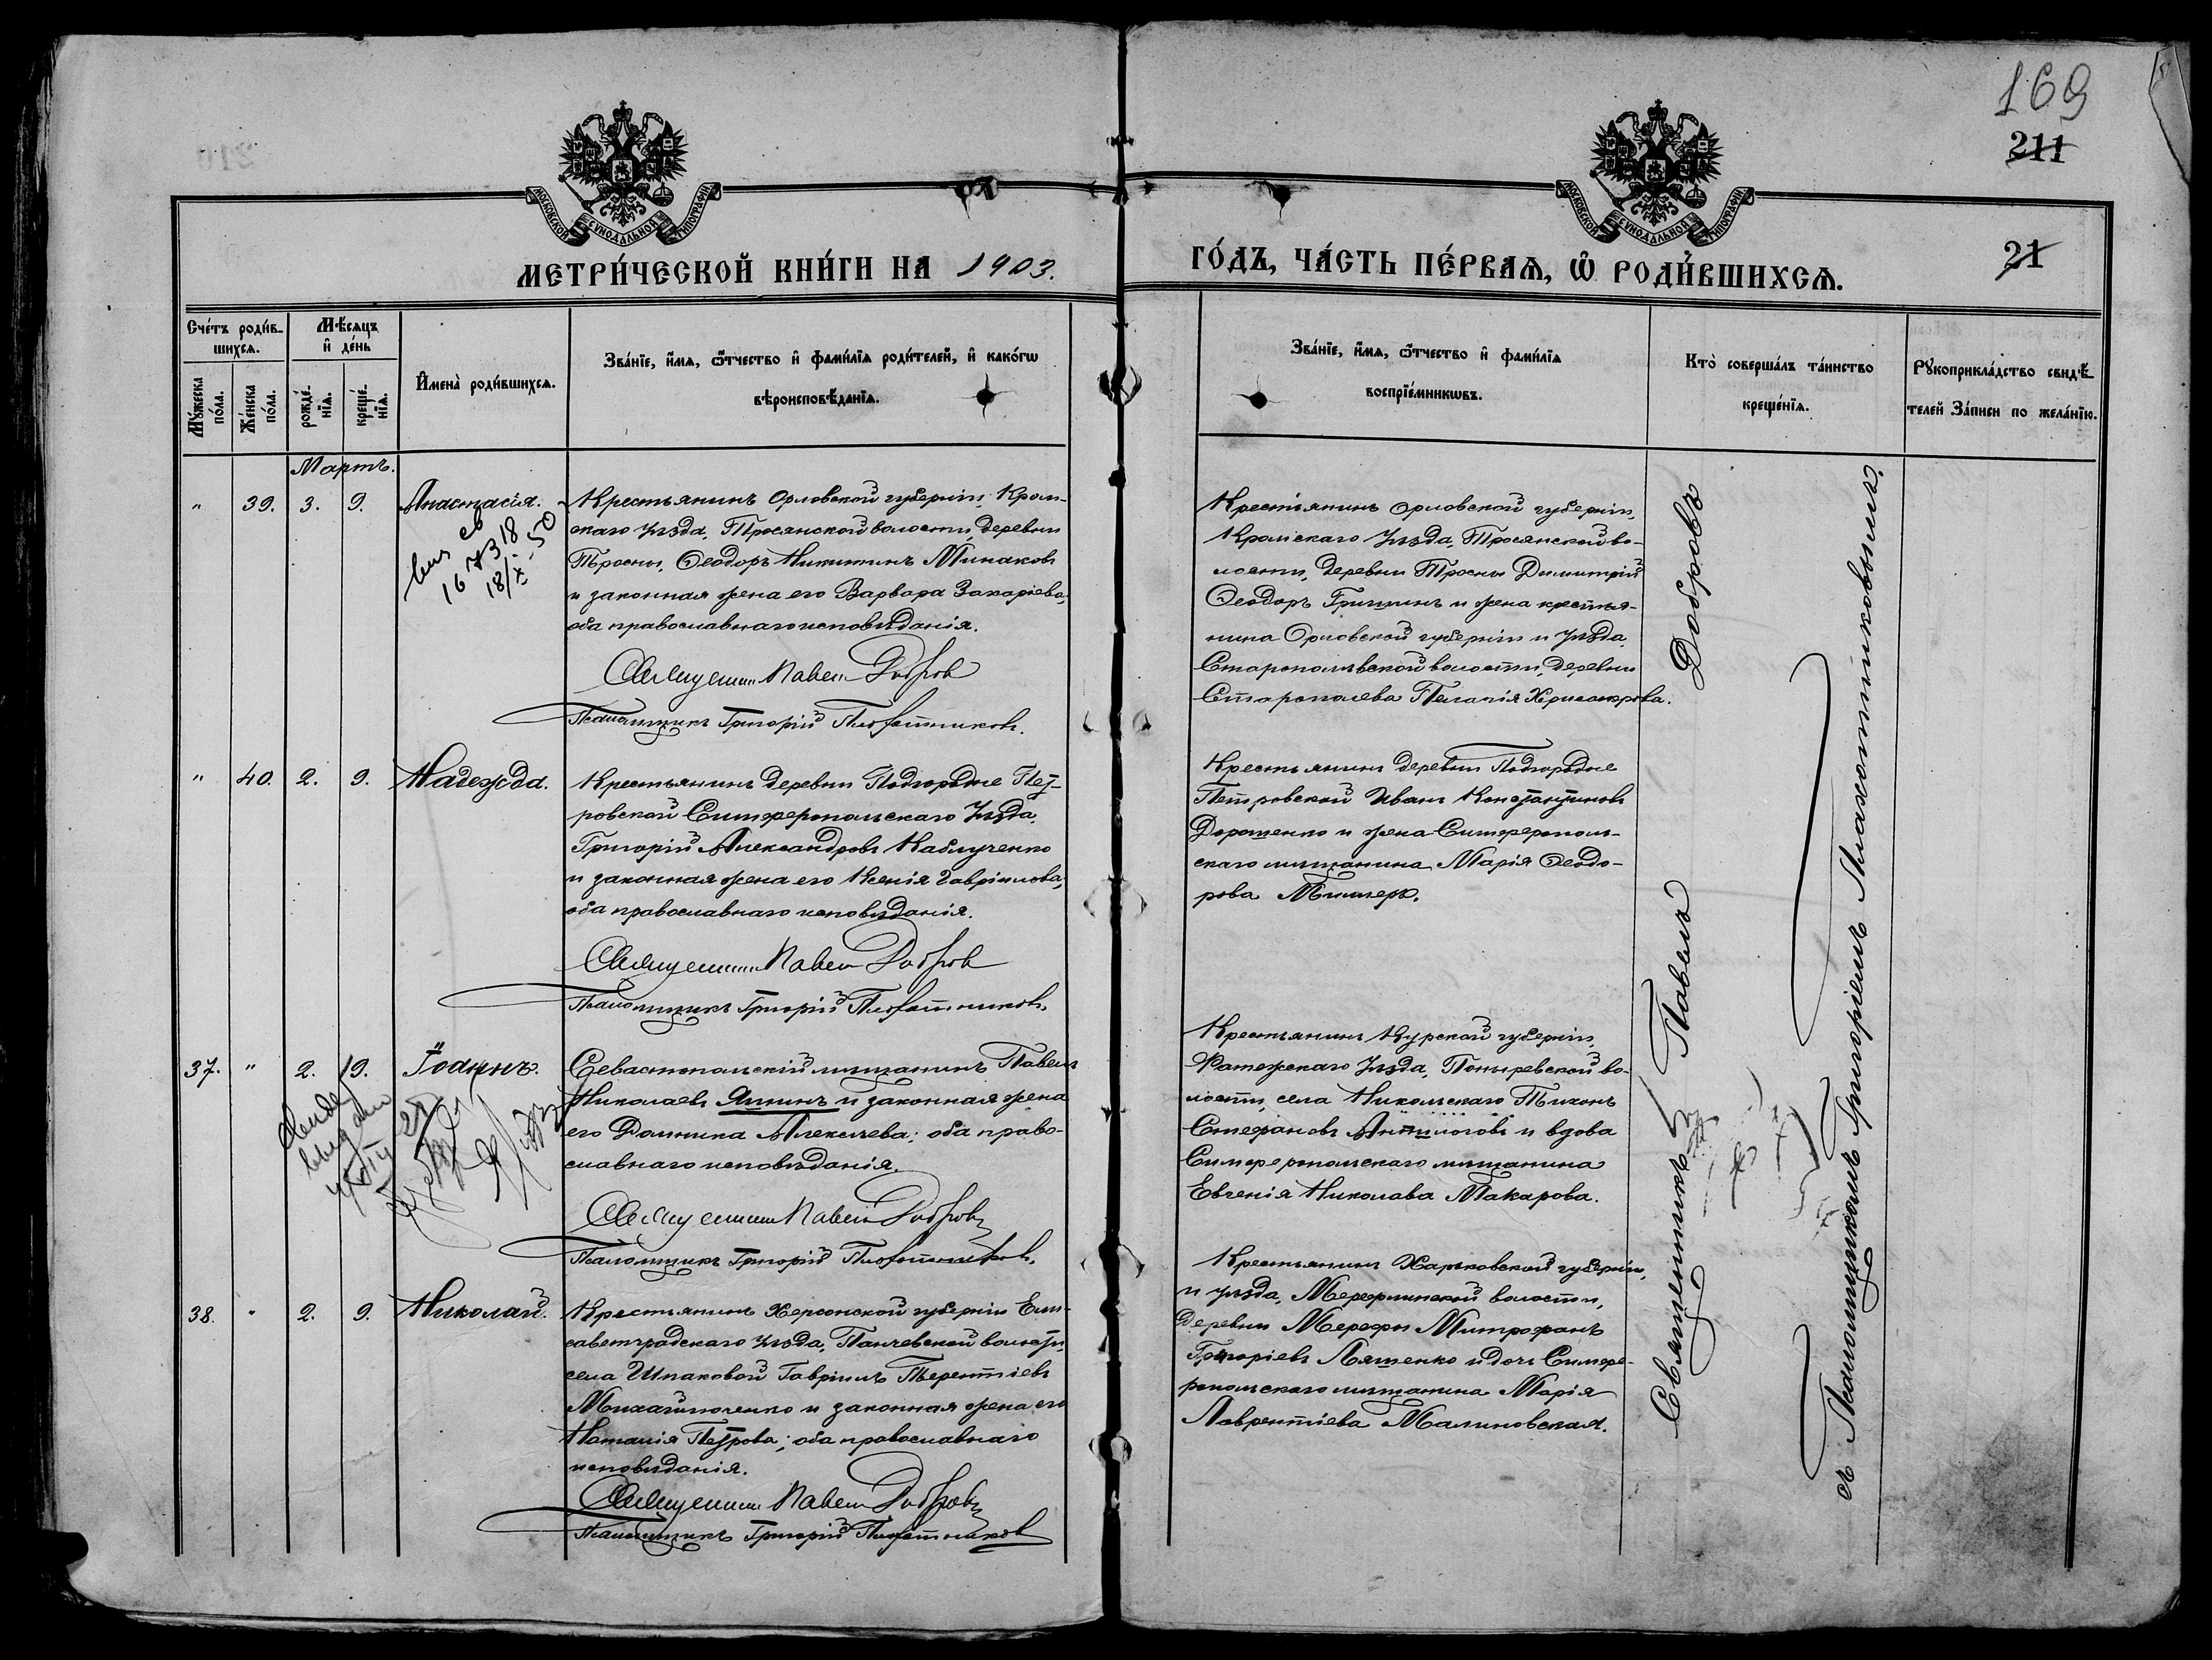 169
211
21
МОСКОВСКОЙ СѴНОДАЛЬНОЙ ТИПОГРАФІИ
МОСКОВСКОЙ СѴНОДАЛЬНОЙ ТИПОГРАФІИ
МЕТРИ́ЧЕСКОЙ КНИ́ГИ НА 1903.
ГО́ДЪ, ЧА́СТЬ ПЕ́РВАѦ, Ѽ РОДИ́ВШИХСѦ.
Сче́тъ роди́в-
шихсѧ.
Мѣ́сѧцъ
и де́нь
Мꙋ́жеска
по́ла.
Же́нска
по́ла.
рожде́-
нїѧ.
креще́-
нїѧ.
Имена̀ роди́вшихсѧ.
Зва́нїе, и́мѧ, ѻ́тчество и фами́лїѧ роди́телей, и како́гѡ
вѣроисповѣ́данїѧ.
Зва́нїе, и́мѧ, ѻ́тчество и фами́лїѧ
воспрїе́мникѡвъ.
Кто̀ соверша́лъ та́инство
креще́нїѧ.
Рꙋкоприкла́дство свидѣ́-
телей За́писи по жела́нїю.
Мартъ.
" 39. 3. 9. Анастасія.
18/X-50
Крестьянинъ Орловской губерніи, Кром-
скаго уѣзда, Тросянской волости, деревни
Тросны, Ѳеодоръ Никитинъ Минаковъ
и законная жена его Варвара Захаріева,
оба православнаго исповѣданія.
Священник Павел Добров
Псаломщикъ Григорій Плахотниковъ.
Крестьянинъ Орловской губерніи,
Кромскаго уѣзда, Тросянской во-
лости, деревни Тросны Димитрій
Ѳеодоръ Гришинъ и жена крестья-
нина Орловской губерніи и уѣзда,
волости, деревни
Пелагія
" 40. 2. 9. Надежда.
Крестьянинъ деревни Подгородне Пет-
ровской Симферопольскаго уѣзда,
Григорій Александровъ Каблученко
и законная жена его Ксенія Гавріилова,
оба православнаго исповѣданія.
Священник Павел Добров
Псаломщикъ Григорій Плахотниковъ.
Крестьянинъ деревни Подгородне
Петровской Иванъ Константиновъ
Дорошенко и жена Симферополь-
скаго мѣщанина Марія Ѳеодо-
рова
37. " 2. 9. Іоаннъ.
Севастопольскій мѣщанинъ Павелъ
Николаевъ Яшинъ и законная жена
его Домника Алексѣева; оба право-
славнаго исповѣданія.
Священник Павел Добровъ
Псаломщикъ Григорій Плахотниковъ.
Крестьянинъ Курской губерніи,
Фатежскаго уѣзда, Поныревской во-
лости, села Никольскаго Тихонъ
Стефановъ и вдова
Симферопольскаго мѣщанина
Евгенія Николаева Макарова.
38. " 2. 9. Николай.
Крестьянинъ Херсонской губерніи Ели-
саветградскаго уѣзда, Панчевской волости,
села Шпаковой Гавріилъ Терентіевъ
Михайлюченко и законная жена его
Наталія Петрова; оба православнаго
исповѣданія.
Священник Павел Добровъ
Псаломщикъ Григорій Плахотников
Крестьянинъ Харьковской губерніи,
и уѣзда, Мерефинской волости,
деревни Мерефы Митрофанъ
Григоріевъ Ляшенко и дочь Симфе-
ропольскаго мѣщанина Марія
Лаврентіева Малиновская.
Священникъ Павелъ Добровъ
съ Псаломщикомъ Григоріемъ Плахотниковымъ.